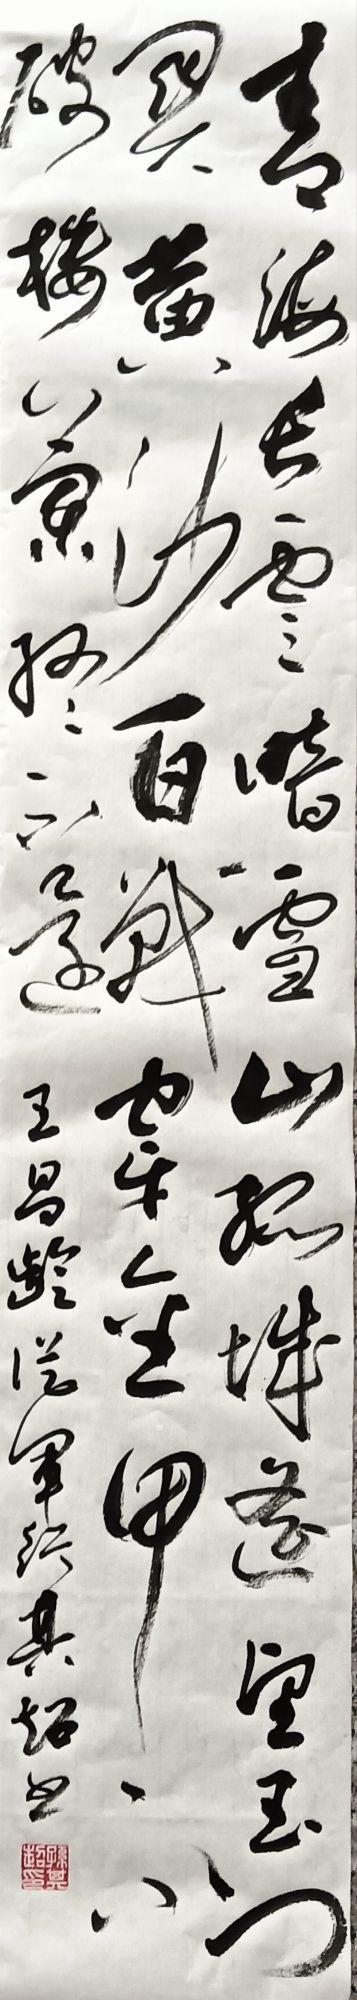 青海長雲暗雪山孤城遥望玉門
關黄沙百戰穿金甲不
破樓蘭終不還
王昌齡從軍行其超書